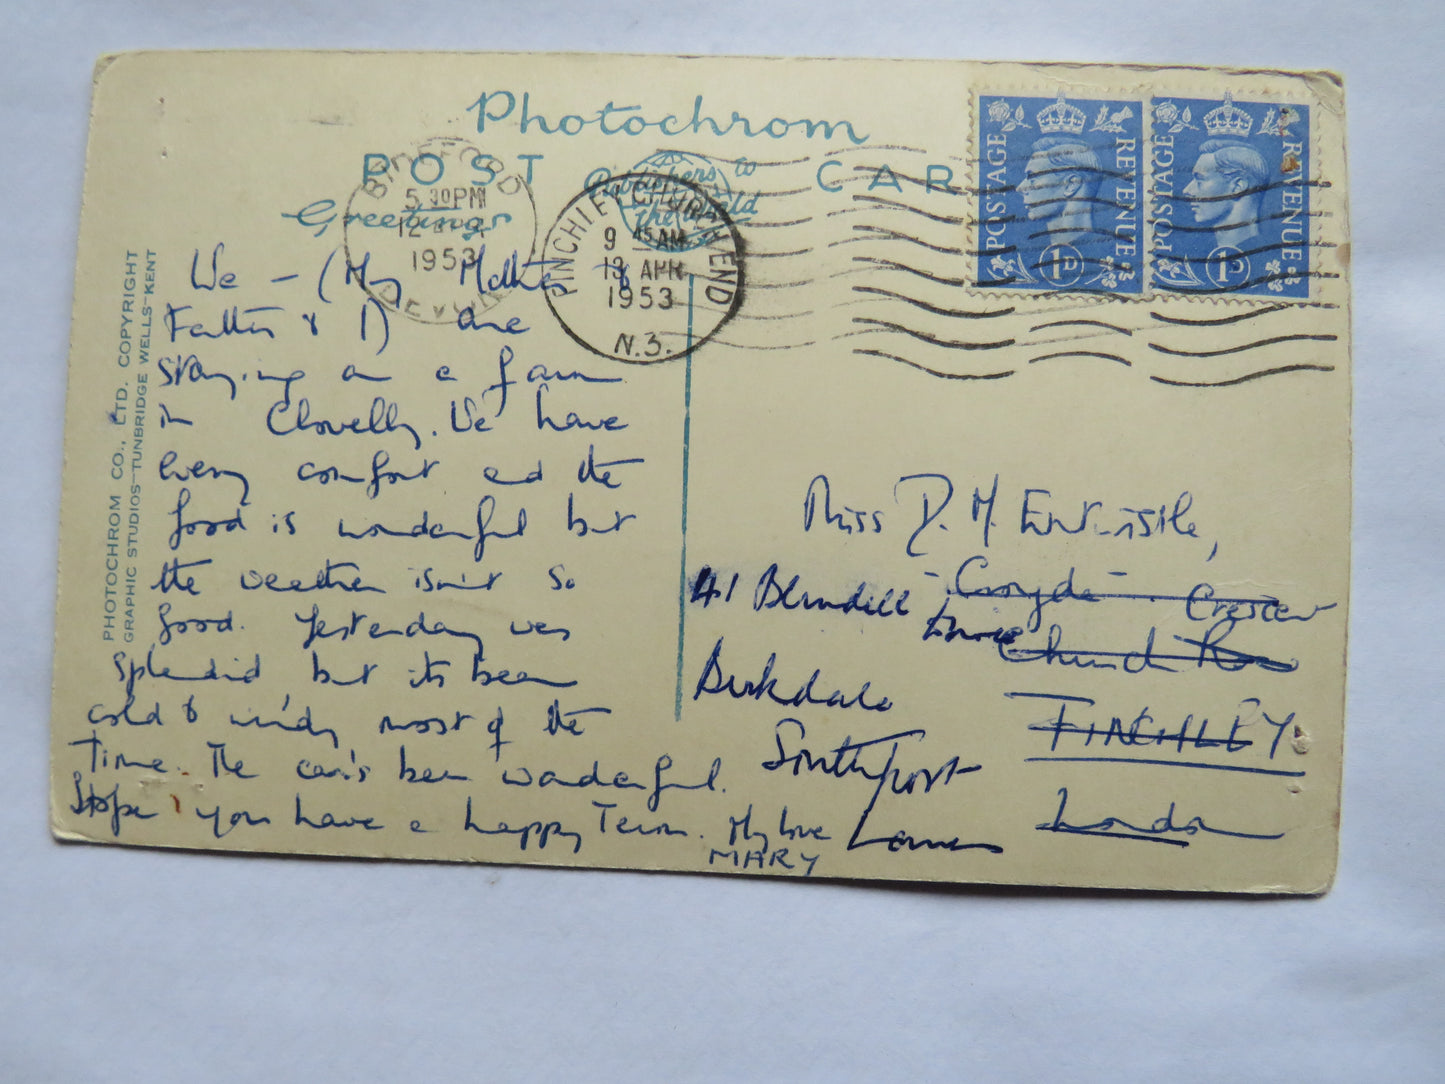 Photochrom
POST CAR
Publishers to
the World
Greetings
BIDEFORD
5.30PM
1953
DEVON
FINCHLEY CHURCH END
9 45AM
13 APR
1953
N.3.
POSTAGE REVENUE
1D
POSTAGE REVENUE
1D
PHOTOCHROM CO., LTD. COPYRIGHT
GRAPHIC STUDIOS-TUNBRIDGE WELLS-KENT
We - (My Mother &
Father & I) are
staying on a farm
in Clovelly. We have
every comfort and the
food is wonderful but
the weather isn't so
good. Yesterday was
splendid but its been
cold & windy most of the
Time. The car's been wonderful.
I hope you have a happy Term. My love
MARY
Miss D. M. Entwistle,
Croyde
41 Blundell Crescent
Church
Birkdale
FINCHLEY
Southport
London
Lancs